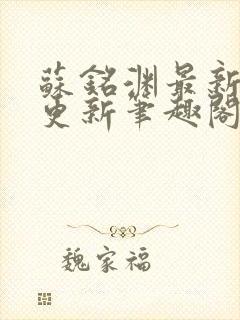 蘇銘淵最新
更新筆趣閣
魏家福